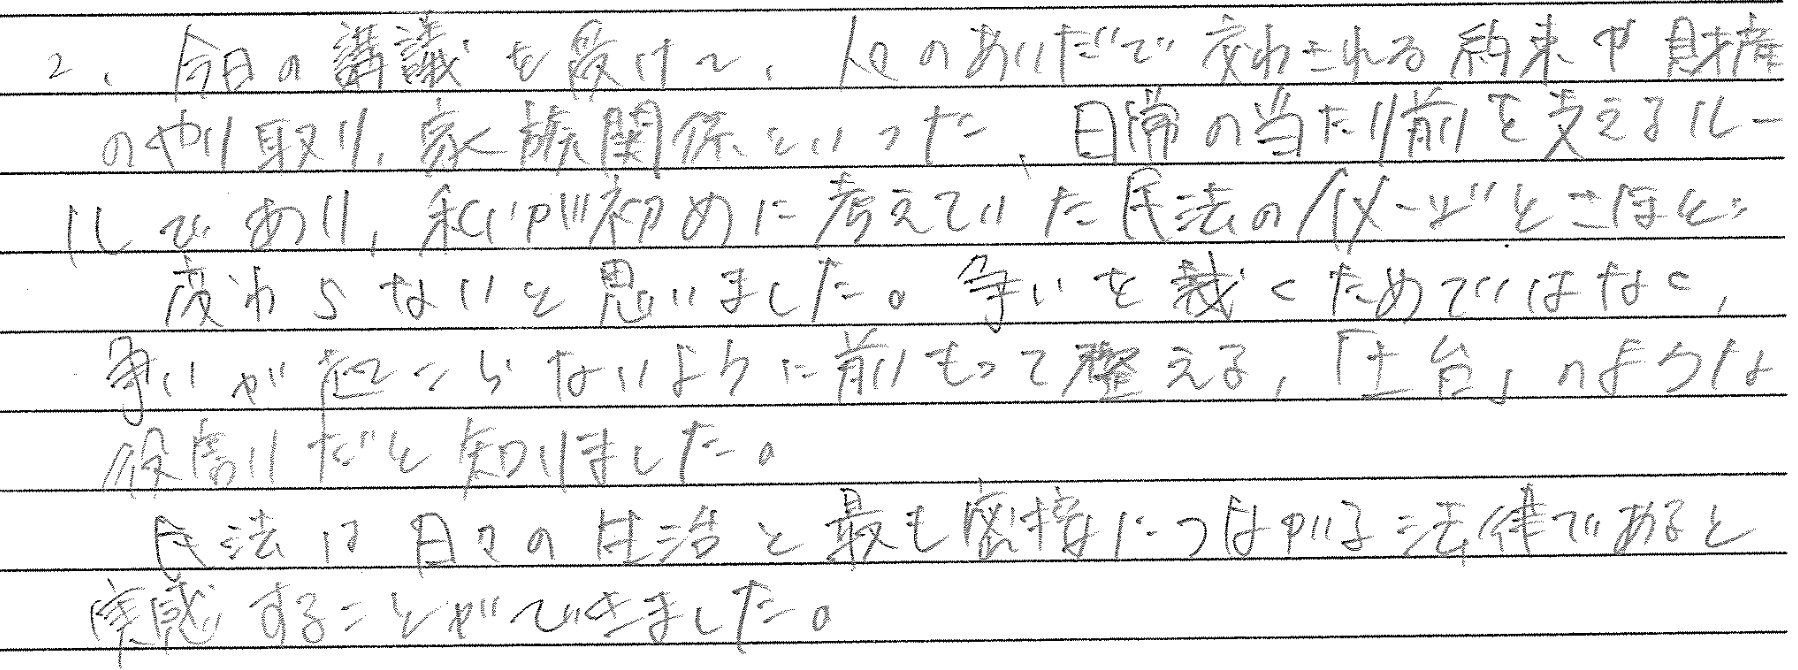 2、今日の講議を受けて、人々のあいだで交わされる約束や財産
のやり取り、家族関係といった、日常の当たり前を支えるルー
ルであり、私が初めに考えていた民法のイメージとさほど
変わらないと思いました。争いを裁くためではなく、
争いが起こらないように前もって整える、「土台」のような
役割だと知りました。
民法は日々の生活と最も密接につながる法律であると
実感することができました。